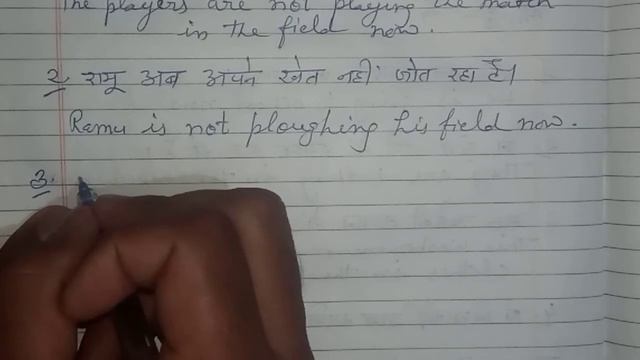 The players are not playing the match
in the field now.
2. रामू अब अपने खेत नहीं जोत रहा है।
Ramu is not ploughing his field now.
3.